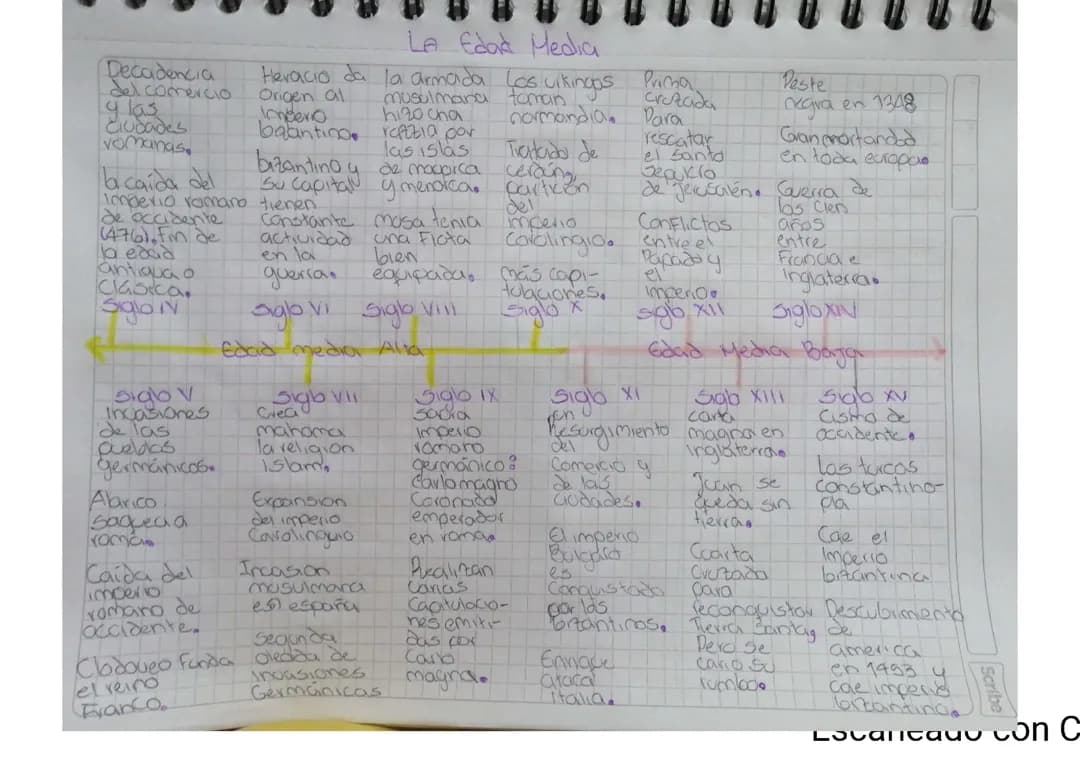 La Edad Media
Decadencia
del comercio
y las
ciudades
romanas.
la caída del
imperio romano
de occidente
(476). Fin de
la edad
antigua o
clásica.
Siglo IV
Heracio da
origen al
Imperio
bizantino.
bizantino y
su capital
tienen
constante
actividad
en la
guerra.
Siglo VI
la armada
musulmana
hizo cha
razzia por
las islas
de mallorca
y menorca.
musa tenia
una Flota
bien
equipada.
Siglo VIII
Los vikingos
toman
normandia.
Tratado de
partición
del
imperio
Carolingio.
más capi-
tulaciones.
Siglo X
Prima
Cruzada
Para
rescatar
el Santo
Sepulcro
de Jerusalén.
Conflictos
entre el
Papado y
el
imperio.
siglo XII
Peste
negra en 1348
Gran mortandad
en toda europa.
Guerra de
los Cien
años
entre
Francia e
Inglaterra.
Siglo XIV
Edad media Alta
Edad Media Baja
Siglo V
Invasiones
de los
pueblos
germánicos.
Alarico
saquea a
roma.
Caída del
imperio
romano de
occidente.
Clodoveo Funda
el reino
Franco.
Siglo VII
Crea
mahoma
la religion
islam.
Expansion
del imperio
Carolinguio
Invasion
musulmana
en españa
Segunda
oleada de
invasiones
Germánicas
Siglo IX
Sacra
imperio
romano
germánico:
Carlomagno
Coronado
emperador
en roma.
Realizan
varias
Capitulacio-
nes emiti-
das por
Carlo
magno.
Siglo XI
en
Resurgimiento
del
Comercio y
de las
ciudades.
El imperio
Bulgaro
es
Conquistado
por los
bizantinos.
Enrique
ataca
italia.
Siglo XIII
carta
magna en
inglaterra.
Juan se
queda sin
tierra.
Cuarta
Cruzada
para
reconquistar
Tierra Santa,
Pero se
vario su
rumbo.
Siglo XV
Cisma de
occidente.
Los turcos
Constantino-
pla
Cae el
Imperio
bizantina
Descubrimento
de
america
en 1493 y
cae imperio
bizantino.
Scribe
Escaneado con C